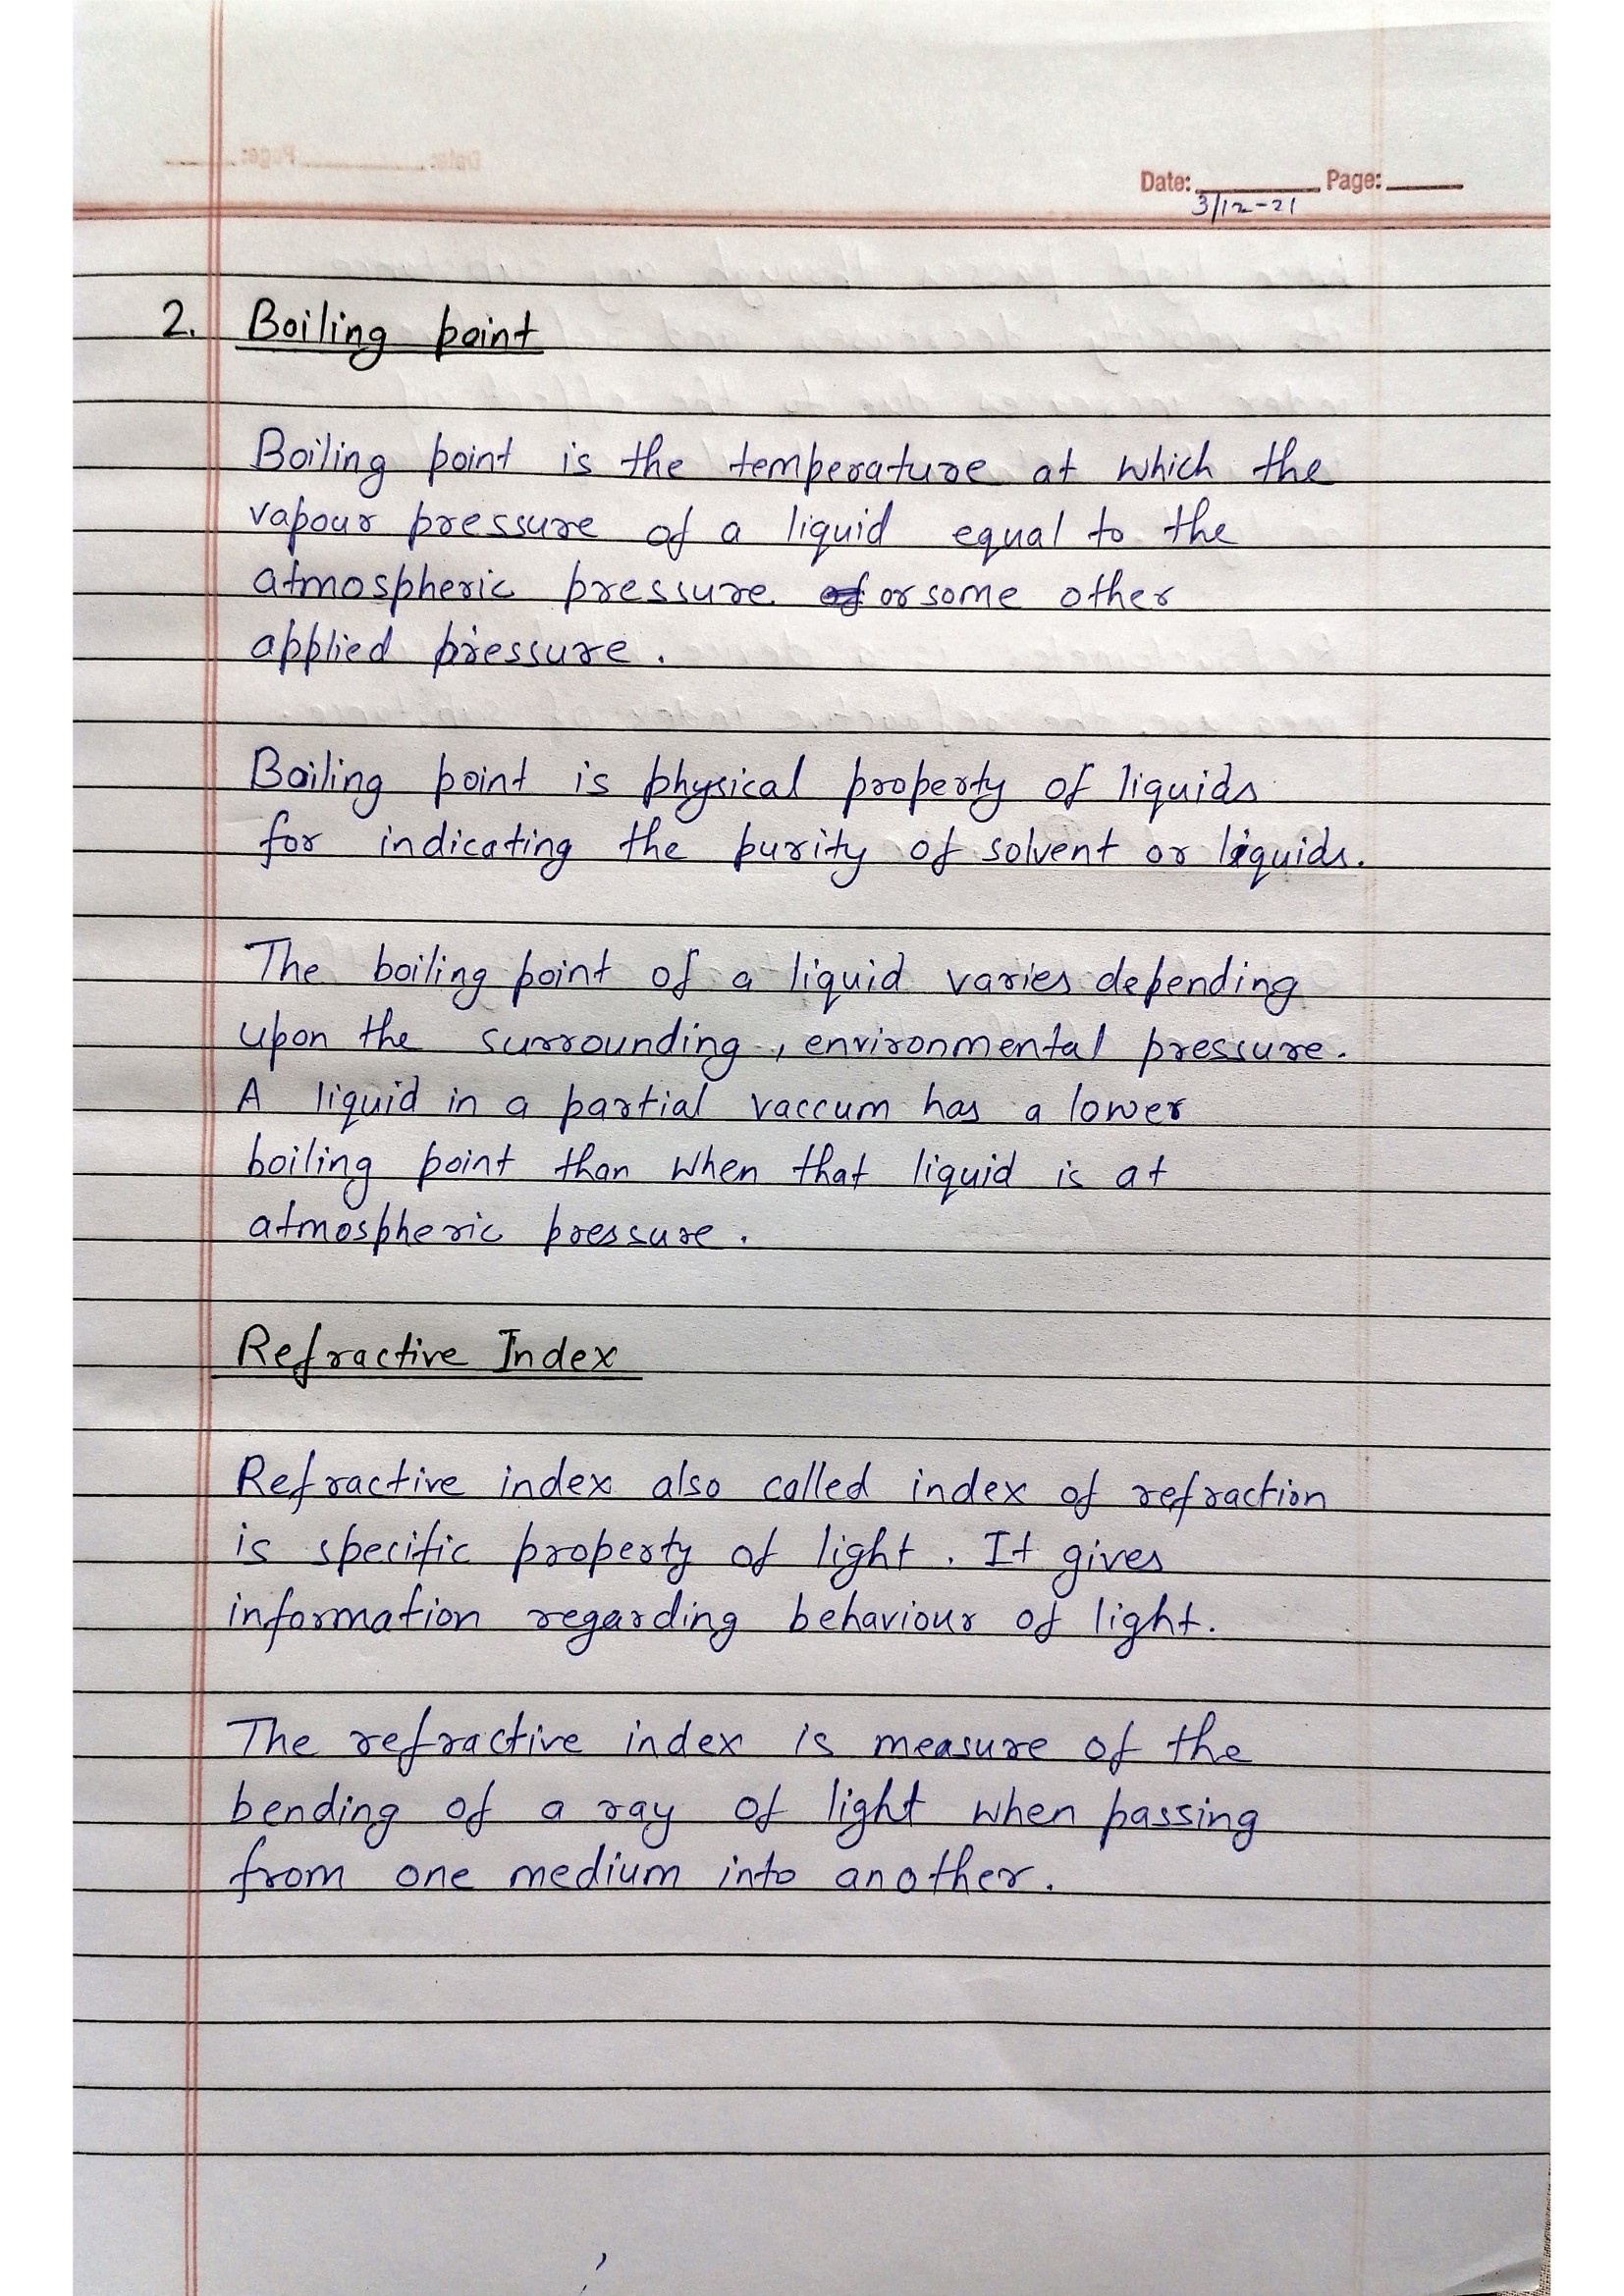 Date: 3/12-21 Page:
2. Boiling point
Boiling point is the temperature at which the
vapour pressure of a liquid equal to the
atmospheric pressure or some other
applied pressure.
Boiling point is physical property of liquids
for indicating the purity of solvent or liquids.
The boiling point of a liquid varies depending
upon the surrounding, environmental pressure.
A liquid in a partial vaccum has a lower
boiling point than when that liquid is at
atmospheric pressure.
Refractive Index
Refractive index also called index of refraction
is specific property of light. It gives
information regarding behaviour of light.
The refractive index is measure of the
bending of a ray of light when passing
from one medium into another.